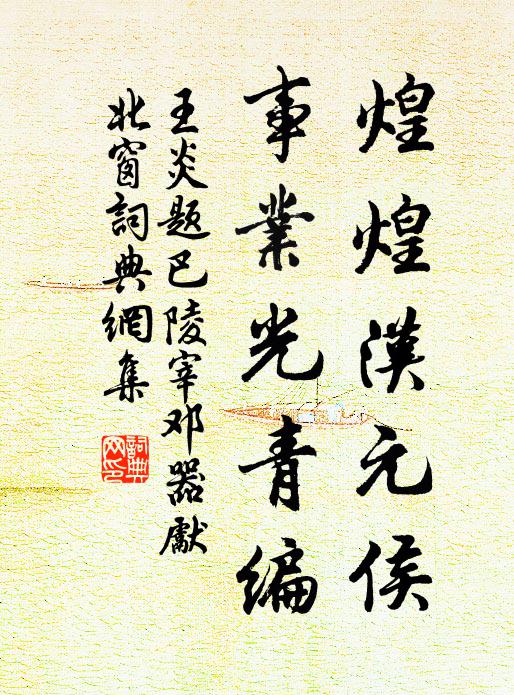 煌煌漢元侯
事業光青編
王炎题巴陵宰邓器獻
北窗詞典網集
詞典网印